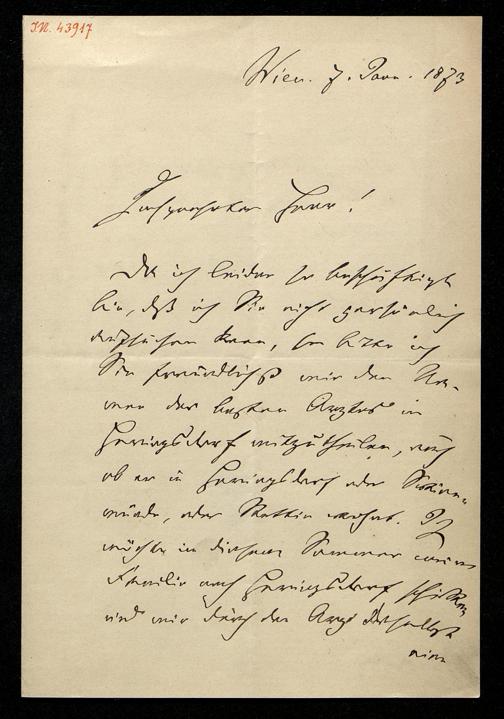 I.N. 43917
Wien. 7. Jan. 1873
Hochverehrter Herr!
Da ich leider so beschäftigt
bin, daß ich Sie nicht persönlich
aufsuchen kann, so bitte ich
Sie freundlichst mir den Na-
men des besten Arztes in
Heringsdorf mitzutheilen, auch
ob er in Heringsdorf oder Swine-
münde, oder Stettin wohnt. Ich
möchte in diesem Sommer meine
Familie nach Heringsdorf schicken
und mir durch den Arzt daselbst
eine